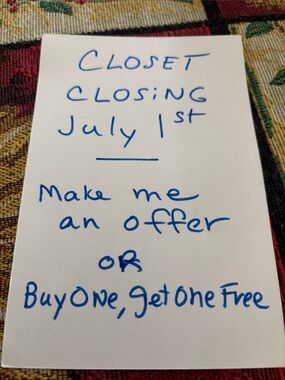 CLOSET
CLOSiNG
July 1st
Make me
an offer
OR
Buy ONe, get One Free